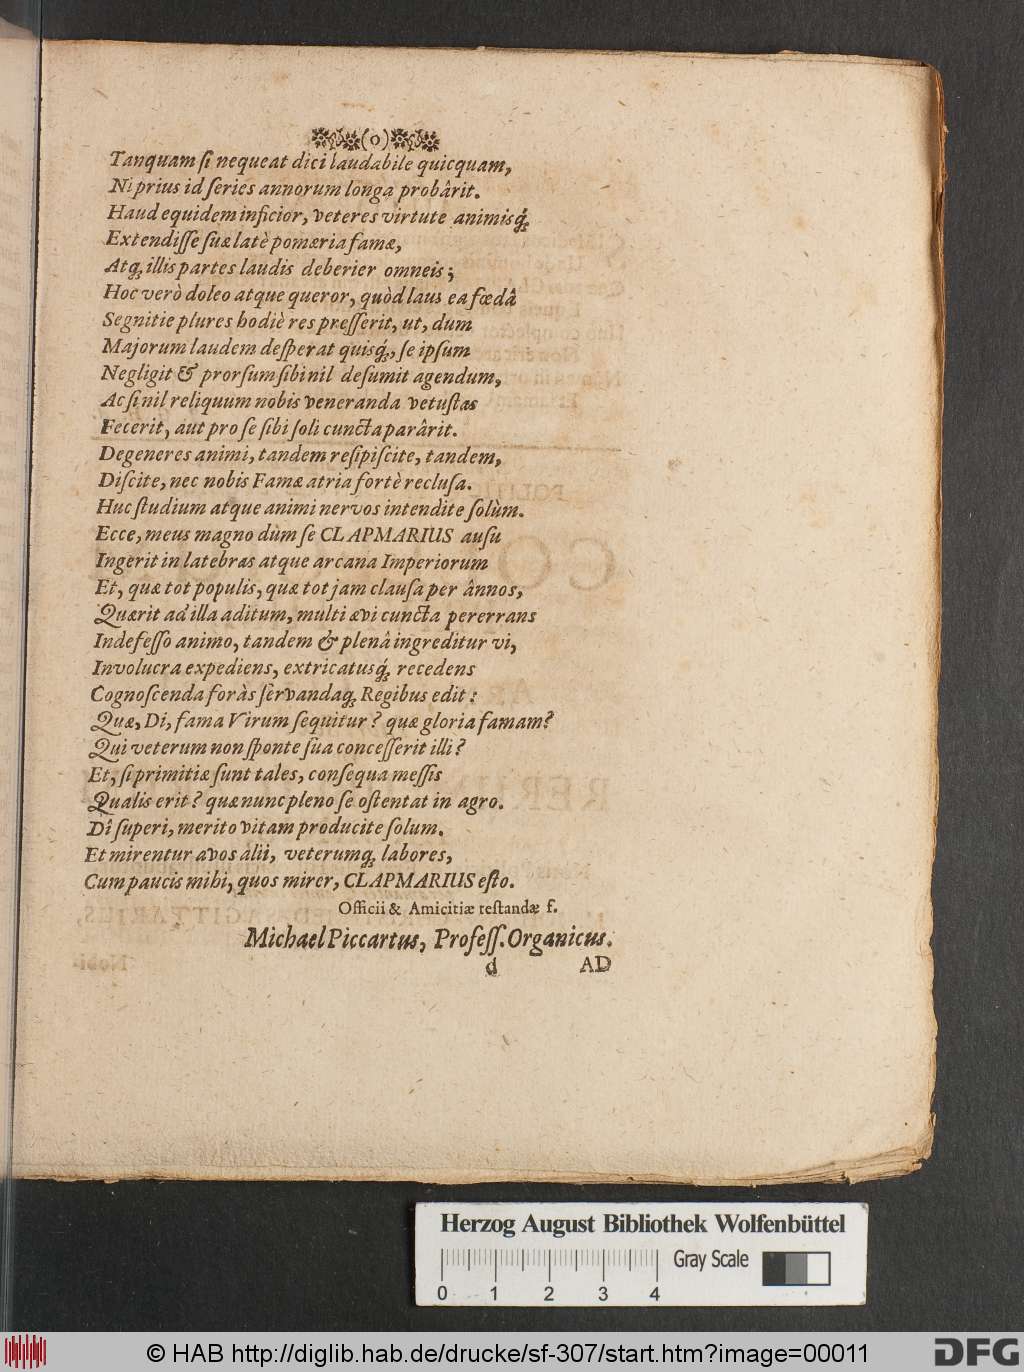 (o)
Tanquam ſi nequeat dici laudabile quicquam,
Ni prius id ſeries annorum longa probârit.
Haud equidem inficior, veteres virtute animisq́;
Extendiſſe ſuæ latè pomæria famæ,
Atq; illis partes laudis deberier omneis;
Hoc verò doleo atque queror, quòd laus ea fœdâ
Segnitie plures hodiè res preſſerit, ut, dum
Majorum laudem deſperat quisq́;, ſe ipſum
Negligit & prorſum ſibi nil deſumit agendum,
Ac ſi nil reliquum nobis veneranda vetuſtas
Fecerit, aut pro ſe ſibi ſoli cuncta parârit.
Degeneres animi, tandem reſipiſcite, tandem,
Diſcite, nec nobis Famæ atria fortè recluſa.
Huc ſtudium atque animi nervos intendite ſolùm.
Ecce, meus magno dùm ſe CLAPMARIUS auſu
Ingerit in latebras atque arcana Imperiorum
Et, quæ tot populis, quæ tot jam clauſa per ânnos,
Quærit ad illa aditum, multi ævi cuncta pererrans
Indefeſſo animo, tandem & plenâ ingreditur vi,
Involucra expediens, extricatusq́; recedens
Cognoſcenda foràs ſervandaq; Regibus edit:
Quæ, Di, fama Virum ſequitur? quæ gloria famam?
Qui veterum non ſponte ſua conceſſerit illi?
Et, ſi primitiæ ſunt tales, conſequa meſſis
Qualis erit? quæ nunc pleno ſe oſtentat in agro.
Dî ſuperi, merito vitam producite ſolum.
Et mirentur avos alii, veterumq; labores,
Cum paucis mihi, quos mirer, CLAPMARIUS eſto.
Officii & Amicitiæ teſtandæ f.
Michael Piccartus, Profeſſ. Organicus.
d AD
Herzog August Bibliothek Wolfenbüttel
Gray Scale
0 1 2 3 4
© HAB http://diglib.hab.de/drucke/sf-307/start.htm?image=00011
DFG